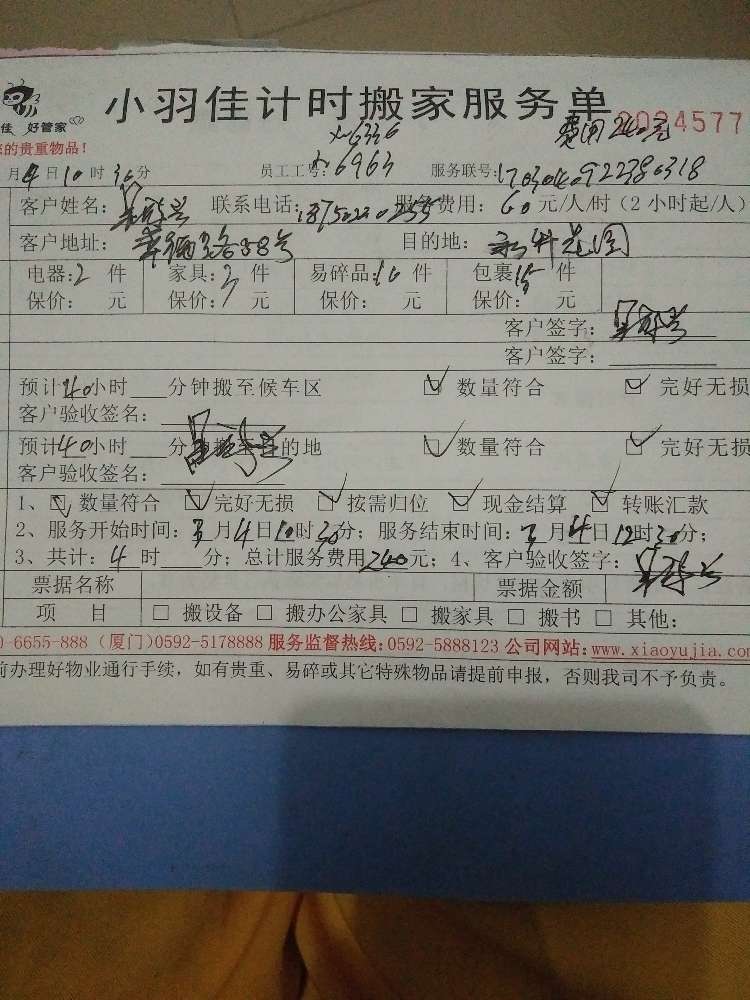 小羽佳计时搬家服务单
佳 好管家
2024577
费用240元
的贵重物品!
x-6336
月4日10时30分 员工工号: 6963 服务联号:
客户姓名: 联系电话: 服务费用:60元/人/时(2小时起/人)
客户地址: 目的地:
电器:2件 家具: 件 易碎品:10件 包裹:15件
保价: 元 保价: 元 保价: 元 保价: 元
客户签字:
客户签字:
预计40小时 分钟搬至候车区 数量符合 完好无损
客户验收签名:
预计40小时 分 的地 数量符合 完好无损
客户验收签名:
1、 数量符合 完好无损 按需归位 现金结算 转账汇款
2、服务开始时间: 月4日10时30分;服务结束时间: 月4日12时30分;
3、共计:4时 分;总计服务费用240元;4、客户验收签字:
票据名称 票据金额
项 目 □ 搬设备 □ 搬办公家具 □ 搬家具 □ 搬书 □ 其他:
0-6655-888(厦门)0592-5178888 服务监督热线:0592-5888123 公司网站:www.xiaoyujia.com
前办理好物业通行手续,如有贵重、易碎或其它特殊物品请提前申报,否则我司不予负责。